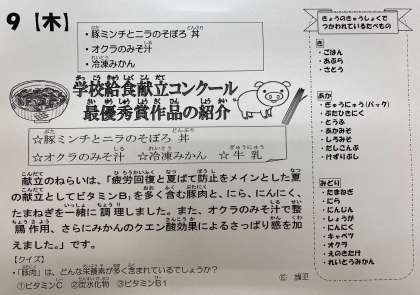 9【木】
・豚ミンチとニラのそぼろ丼
・オクラのみそ汁
・冷凍みかん
学校給食献立コンクール
最優秀賞作品の紹介
☆豚ミンチとニラのそぼろ丼
☆オクラのみそ汁 ☆冷凍みかん ☆牛乳
献立のねらいは、「疲労回復と夏ばて防止をメインとした夏
の献立としてビタミンB₁を多く含む豚肉と、にら、にんにく、
たまねぎを一緒に調理しました。また、オクラのみそ汁で整
腸作用、さらにみかんのクエン酸効果によるさっぱり感を加
えました。」です。
【クイズ】
・「豚肉」は、どんな栄養素が多く含まれているでしょうか?
①ビタミンC ②炭水化物 ③ビタミンB1
きょうのきゅうしょくで
つかわれているたべもの
き
・ごはん
・あぶら
・さとう
あか
・ぎゅうにゅう(パック)
・ぶたひきにく
・とうふ
・あかみそ
・しろみそ
・だしこんぶ
・けずりぶし
みどり
・たまねぎ
・にら
・にんじん
・しょうが
・にんにく
・キャベツ
・オクラ
・えのきたけ
・れいとうみかん